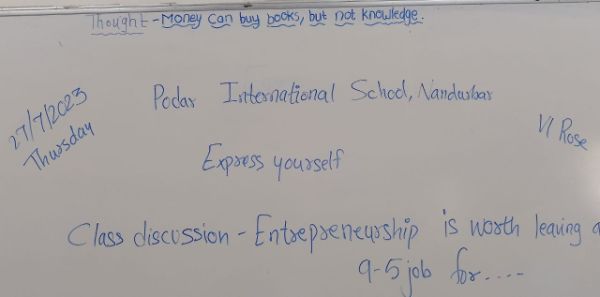 Thought - Money can buy books, but not knowledge.
27/7/2023
Thursday
Podar International School, Nandurbar
VI Rose
Express yourself
Class discussion - Entrepreneurship is worth leaving a
9-5 job for....